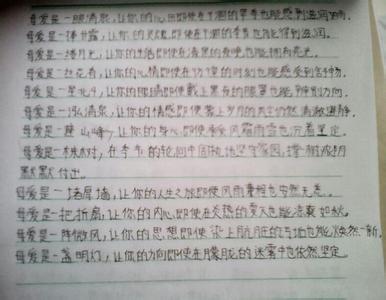 母爱是一眼清泉，让你的心即使在干涸的季节也能感到滋润
母爱是一捧甘露，让你的灵魂即使在干涸的季节也能得到滋润。
母爱是一缕月光，让你的生活即使在漆黑的夜晚也能拥有亮光。
母爱是一丛花香，让你的心情即使在彷徨的时刻也能感受到
母爱是一星北斗，让你的眼睛即使戴上黑布的眼罩也能辨别方向。
母爱是一泓清泉，让你的情感即使蒙上岁月的风尘仍然清澈澄净。
母爱是一座山峰，让你的身心即使承受风霜雨雪也沉着坚定。
母爱是一株树，在季节的轮回中固执地坚守家园，撑
默默付出。
母爱是一堵厚墙，让你的人生之旅即使风雨兼程也安然无恙。
母爱是一把折扇，让你的内心即使在炎热的夏天也能凉爽如秋。
母爱是一阵微风，让你的思想即使染上肮脏的也能焕然一新。
母爱是一盏明灯，让你的方向即使在朦胧的迷雾中也依然坚定。